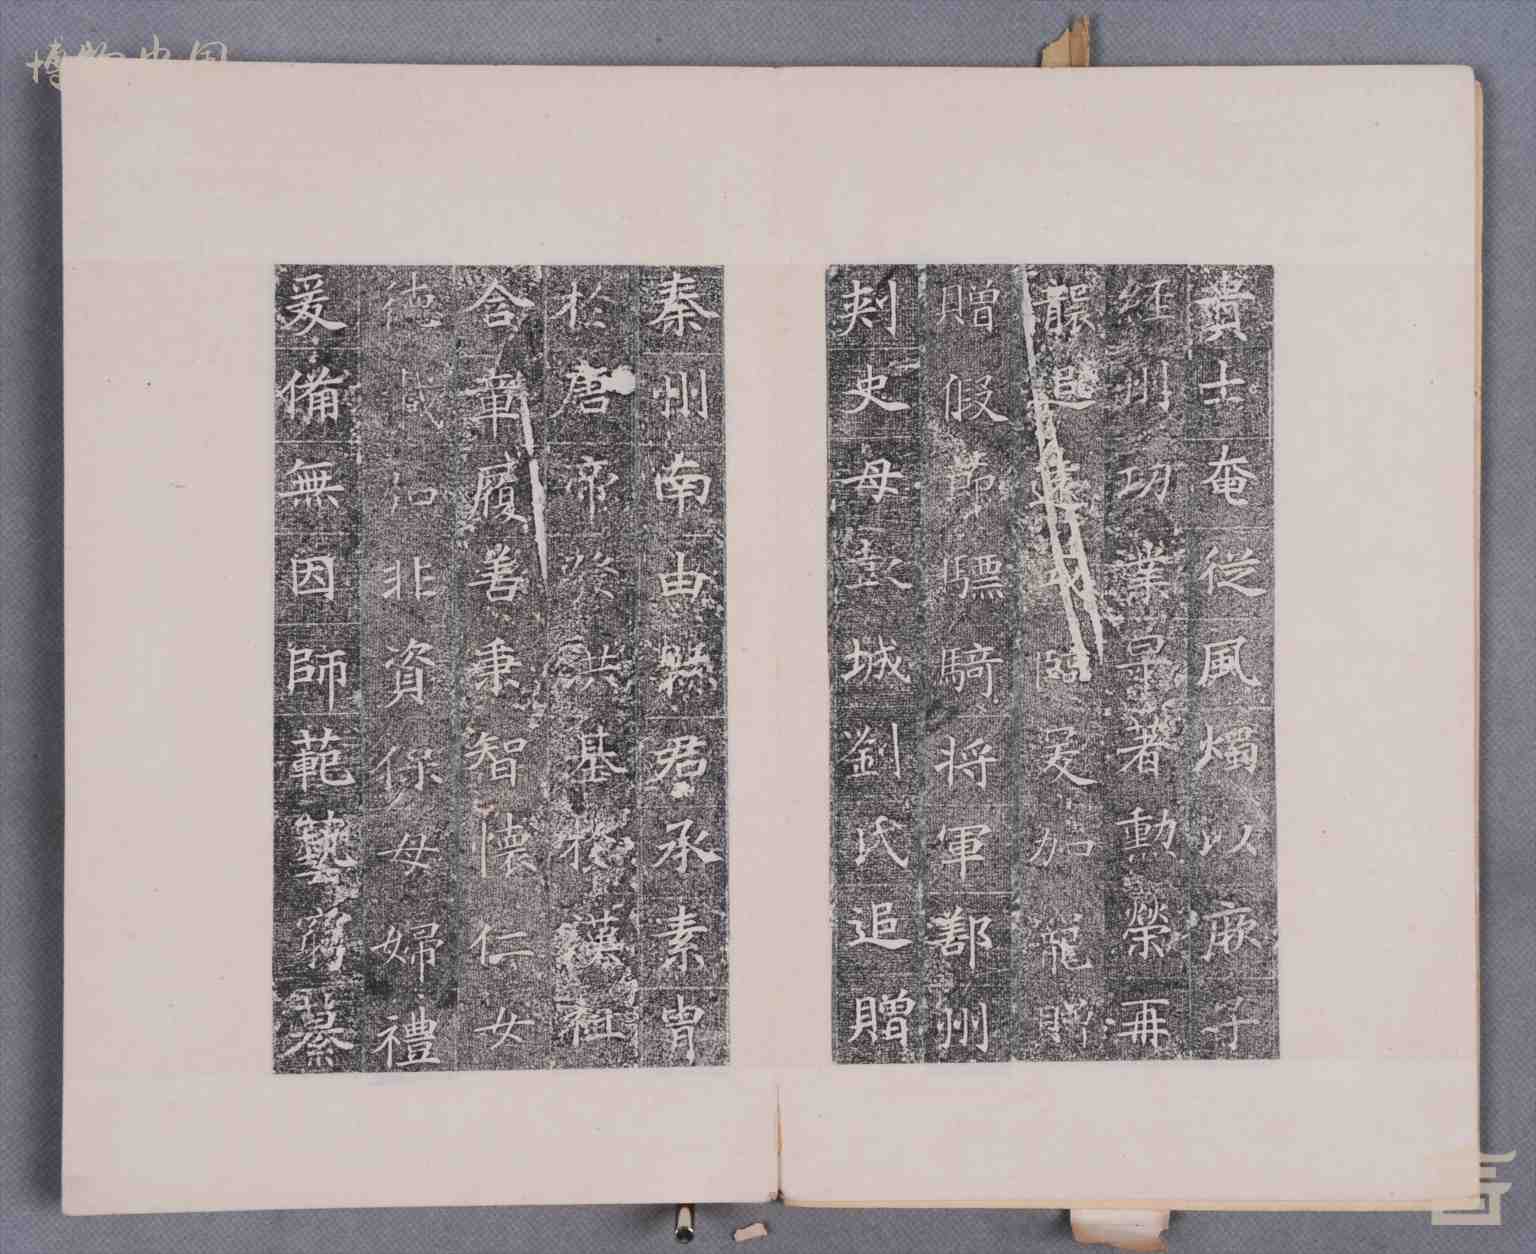 賁士奄從風燭以子
經州功業尋著勳榮再
追遠臨爰加寵贈
贈假節驃騎将軍鄯州
刾史母彭城劉氏追贈
秦州南由縣君承素胄
於唐帝發洪基於漢祖
含章履善秉智懷仁女
德咸非資保母婦禮
爰備無因師範藝窮綦